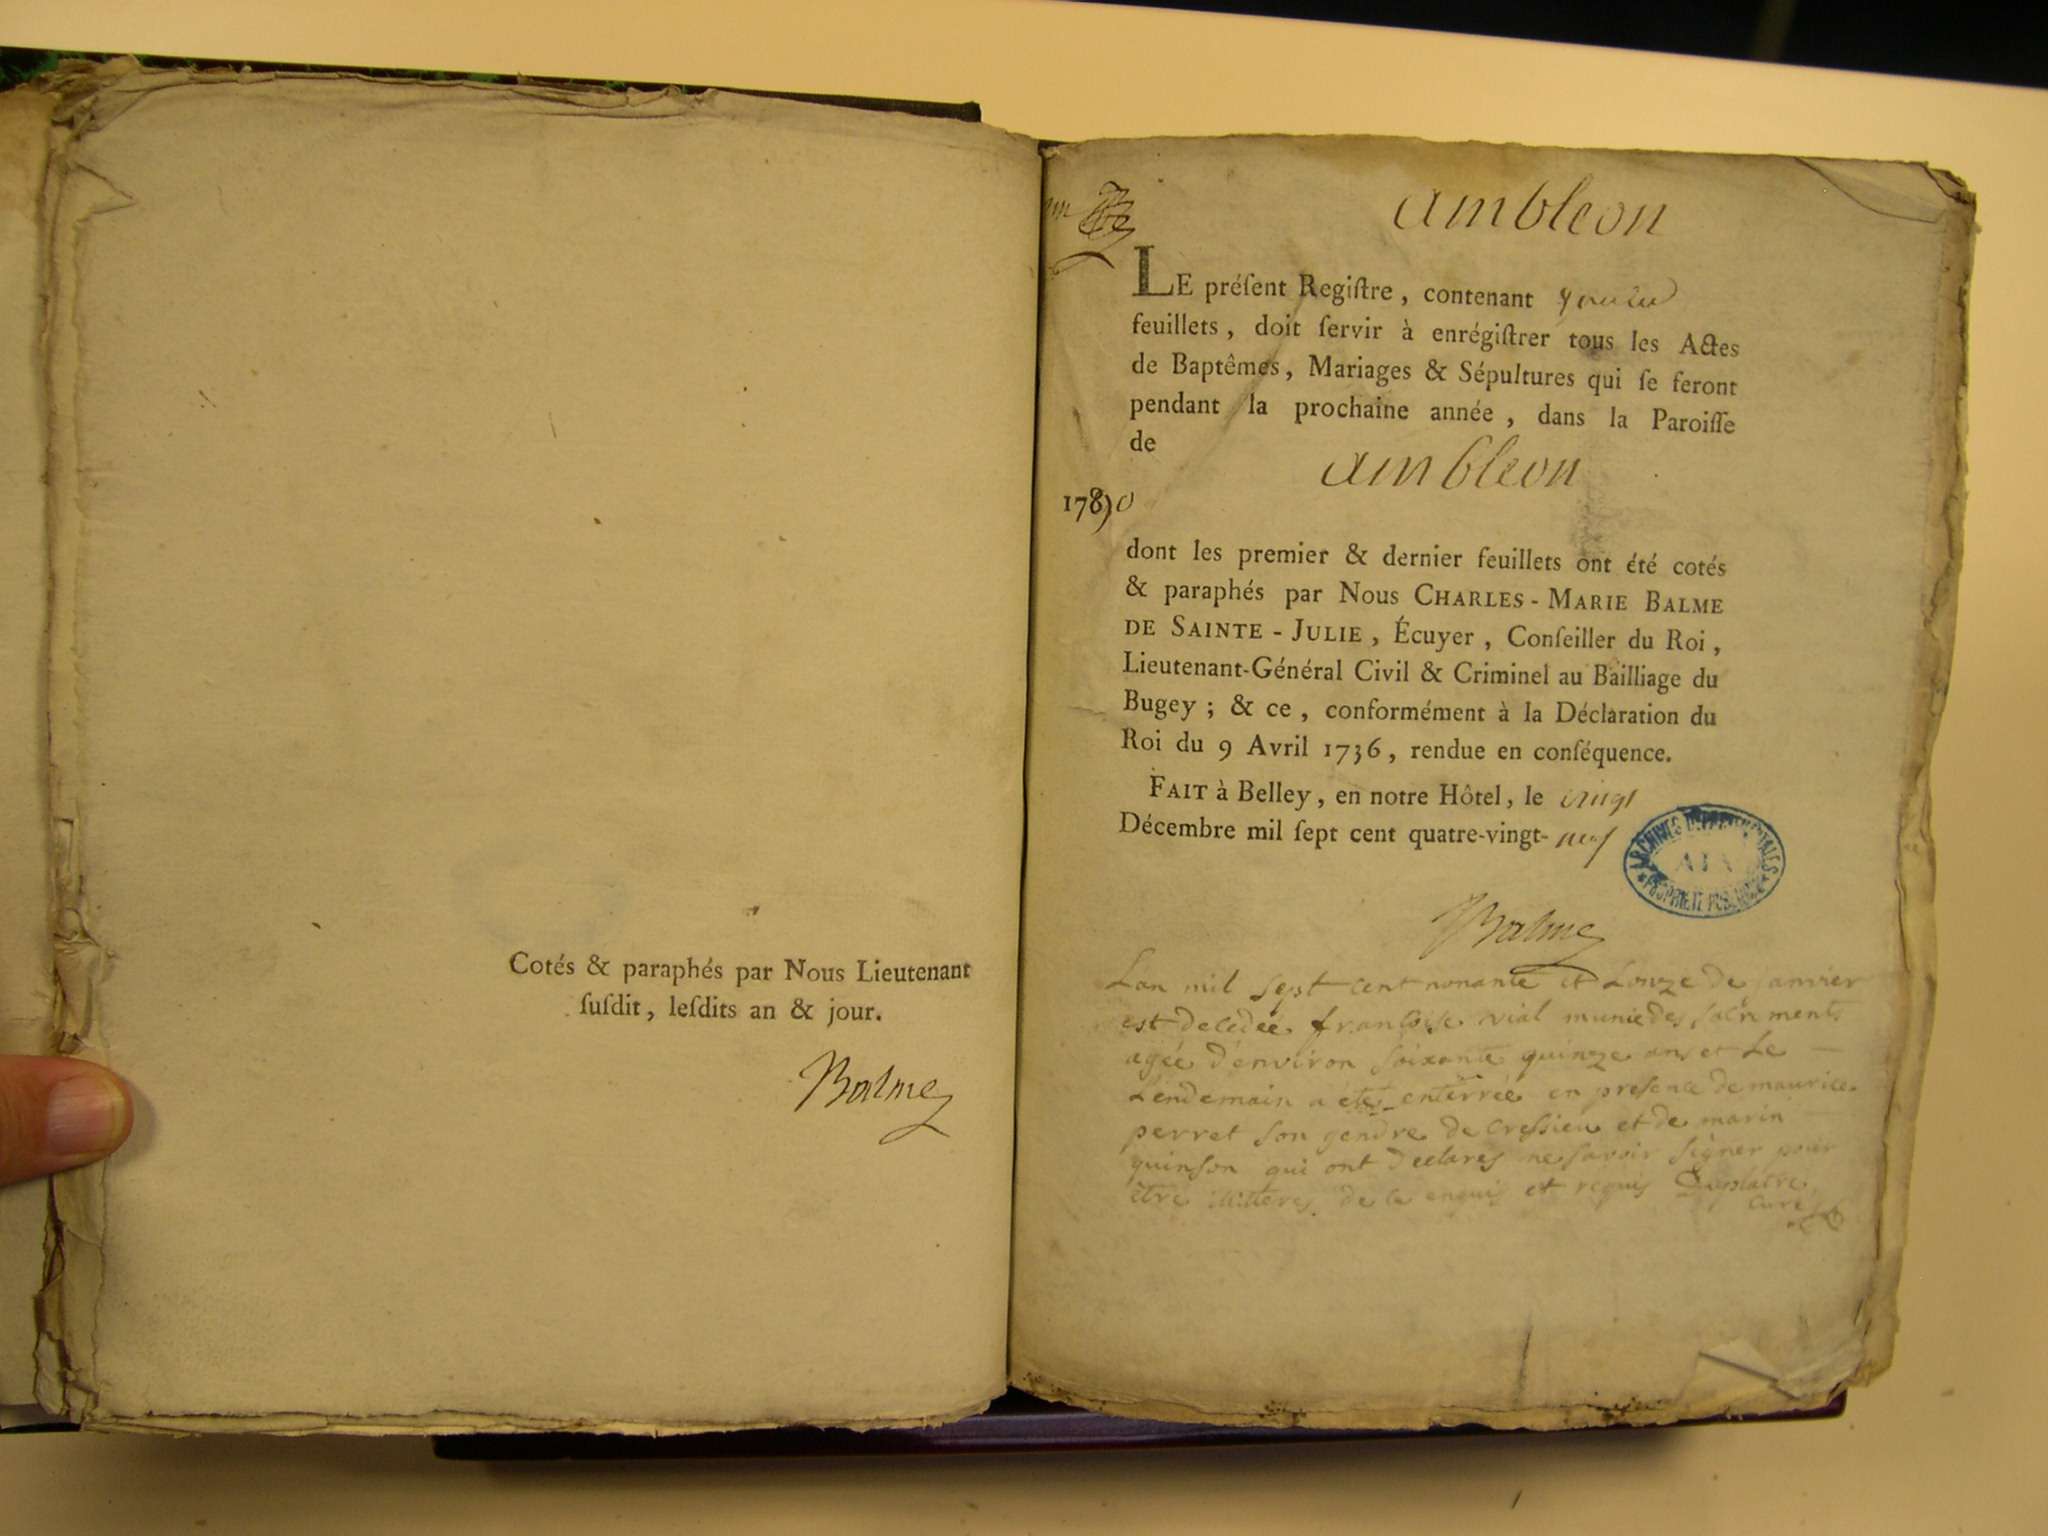 Cotés & paraphés par Nous Lieutenant
ſuſdit, leſdits an & jour.
Balme
ambleon
LE préſent Regiſtre, contenant
feuillets, doit ſervir à enrégiſtrer tous les Actes
de Baptêmes, Mariages & Sépultures qui ſe feront
pendant la prochaine année, dans la Paroiſſe
de
ambleon
1790
dont les premier & dernier feuillets ont été cotés
& paraphés par Nous CHARLES-MARIE BALME
DE SAINTE-JULIE, Écuyer, Conſeiller du Roi,
Lieutenant-Général Civil & Criminel au Bailliage du
Bugey; & ce, conformément à la Déclaration du
Roi du 9 Avril 1736, rendue en conſéquence.
FAIT à Belley, en notre Hôtel, le vingt
Décembre mil ſept cent quatre-vingt-neuf
ARCHIVES DÉPARTEMENTALES
AIN
PROPRIÉTÉ PUBLIQUE
Balme
Lan mil sept cent nonante et Lonze de janvier
est decedée françoise vial munie des sacrments
agée d'environ soixante quinze ans et Le
Lendemain a été enterrée en presence de maurice
perret son gendre de cressieu et de marin
quinson qui ont declarés ne savoir signer pour
être illitterés de ce enquis et requis
curé